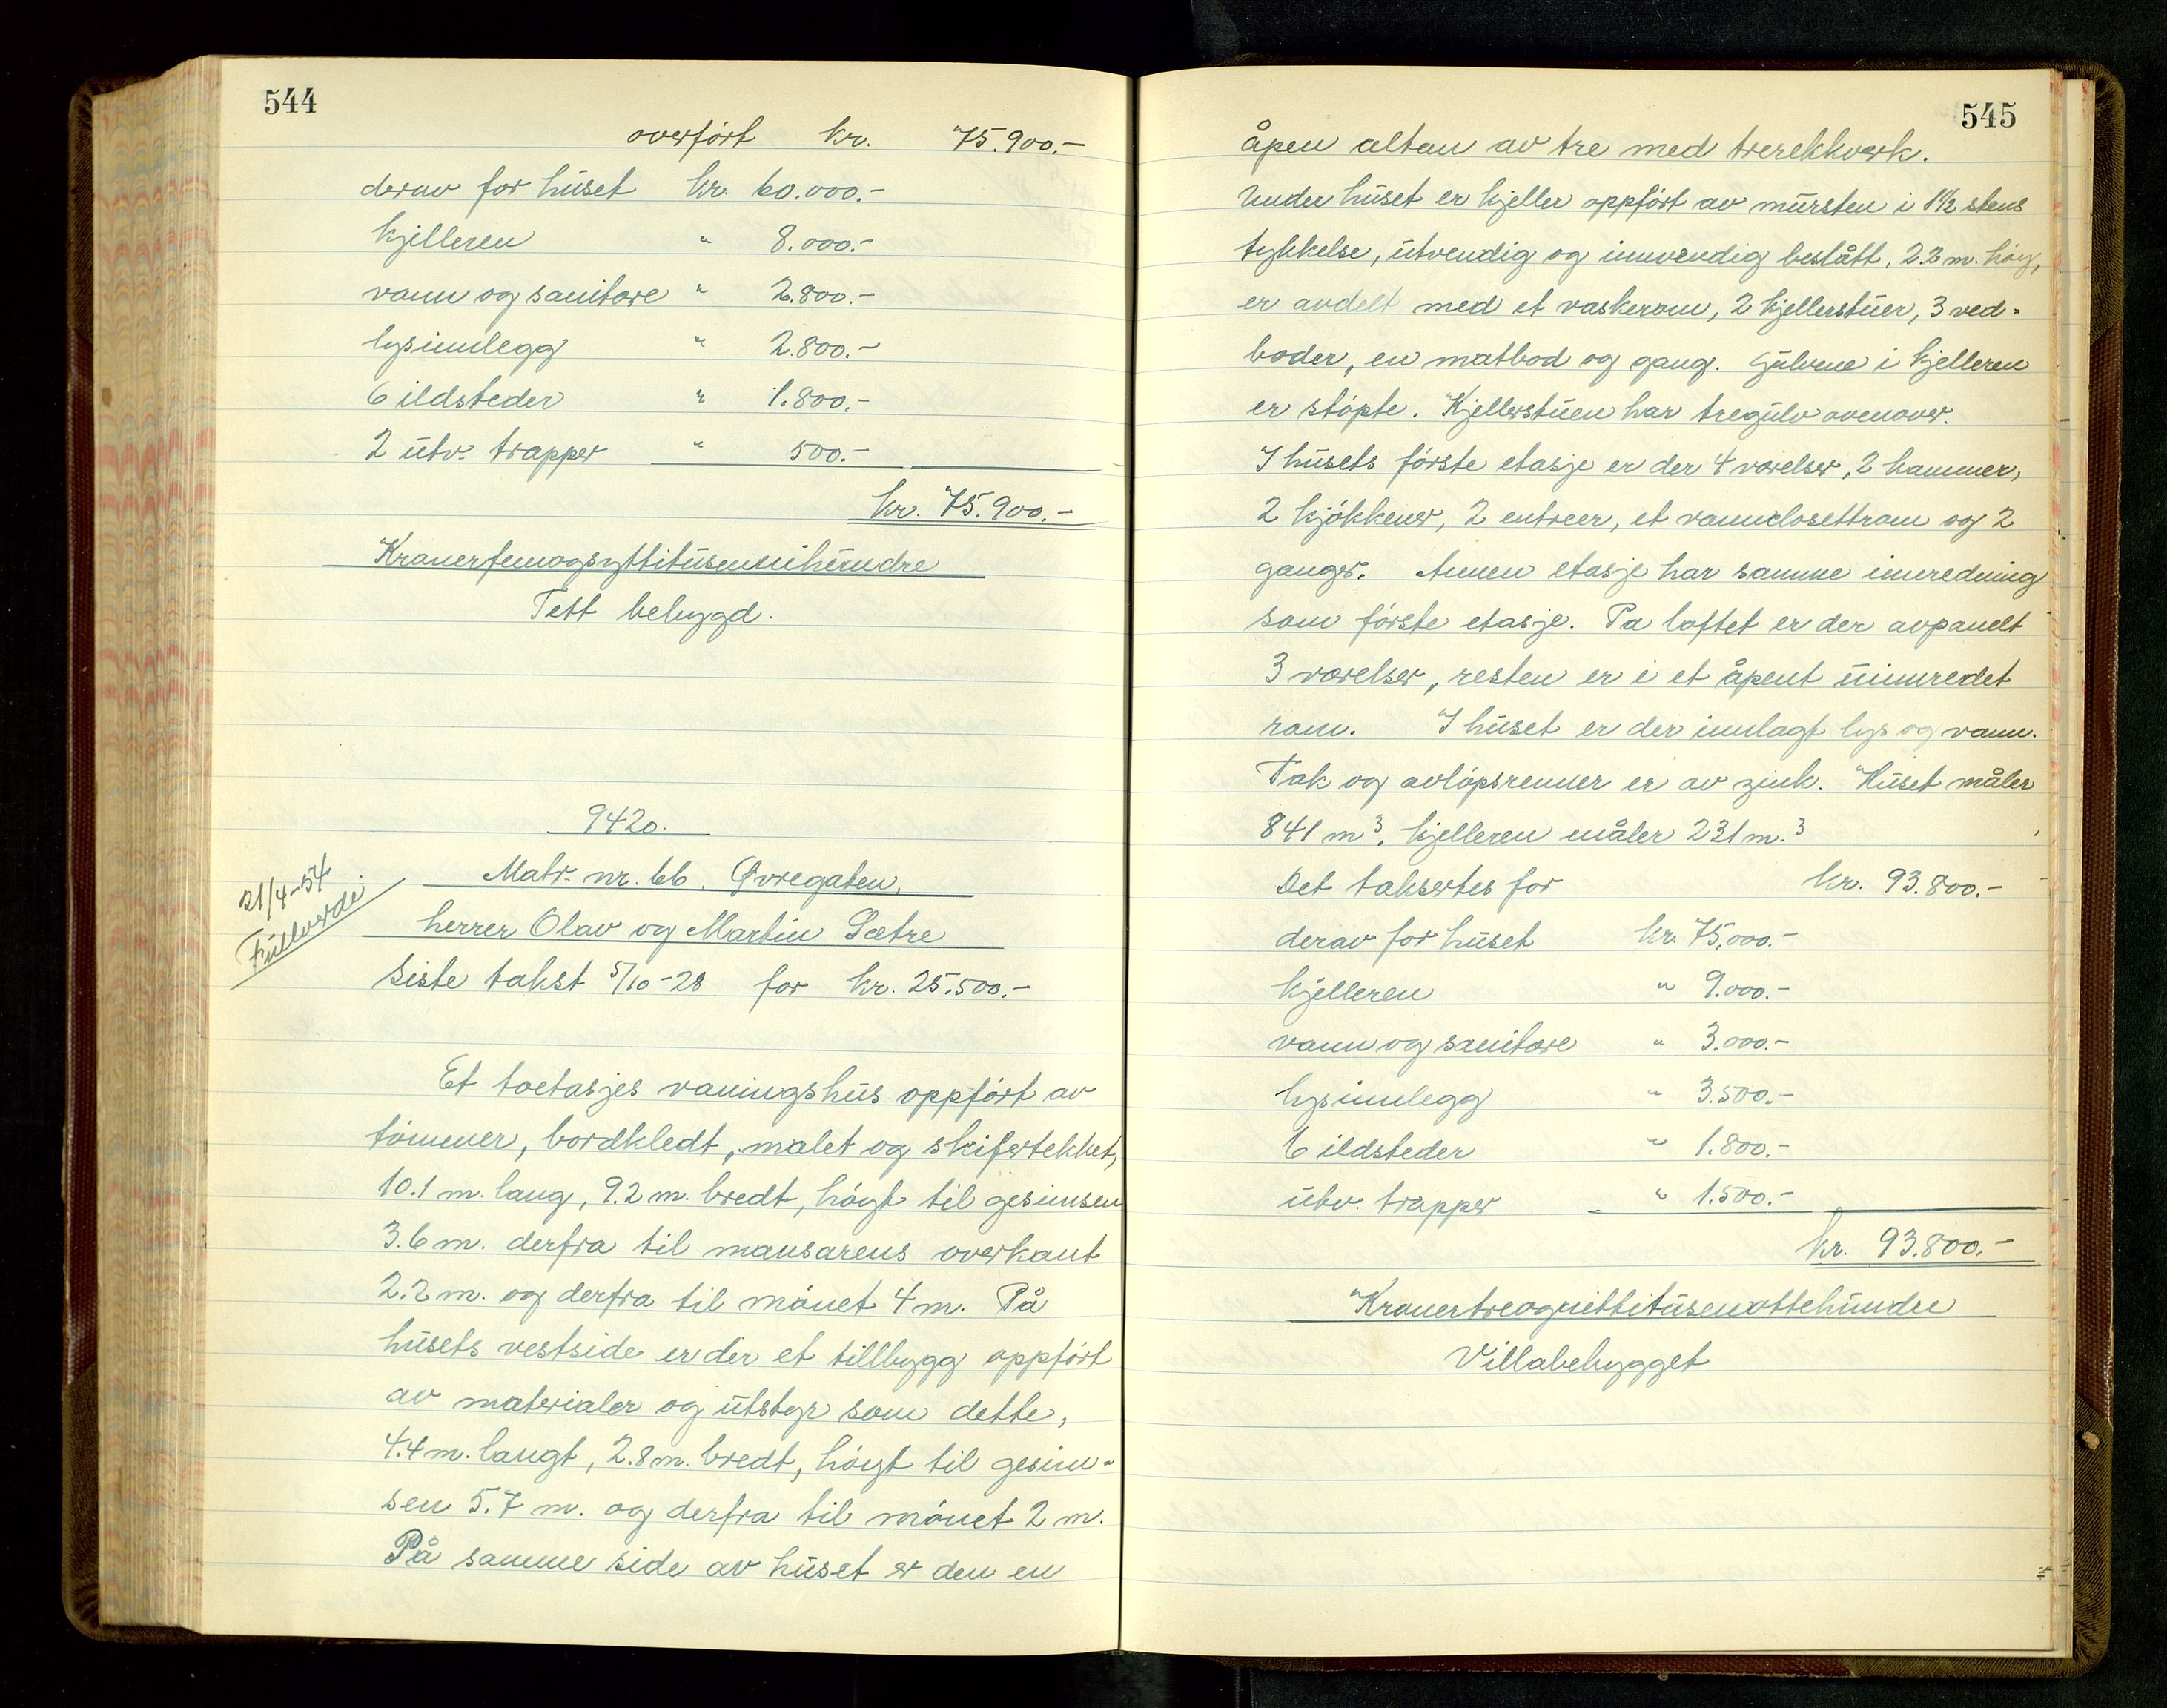 544
overført kr. 75.900.-
derav for huset kr. 60.000.-
kjelleren " 8.000.-
vann og sanitære " 2.800.-
lysinnlegg " 2.800.-
6 ildsteder " 1.800.-
2 utv. trapper " 500.-
kr. 75.900.-
Kronerfemogsyttitusennihundre
Tett bebygd.
9420.
Matr. nr. 66. Øvregaten,
herrer Olav og Martin Sætre
siste takst 5/10-28 for kr. 25.500.-
21/4-54
Fullverdi
Et toetasjes vaningshus oppført av
tømmer, bordkledt, malet og skifertekket,
10.1 m. lang, 9.2 m. bredt, høgt til gesimsen
3.6 m. derfra til mansarens overkant
2.2 m. og derfra til mønet 4 m. På
husets vestside er der et tillbygg oppført
av materialer og utstyr som dette,
4.4 m. langt, 2.8 m. bredt, høgt til gesim-
sen 5.7 m. og derfra til mønet 2 m.
På samme side av huset er den en
545
åpen altan av tre med trerekkverk.
Under huset er kjeller oppført av mursten i 1 1/2 stens
tykkelse, utvendig og innvendig beslått, 2.3 m. høg,
er avdelt med et vaskerom, 2 kjellerstuer, 3 ved-
boder, en matbod og gang. Gulvene i kjelleren
er støpte. Kjellerstuen har tregulv ovenover.
I husets første etasje er der 4 værelser, 2 kammer,
2 kjøkkener, 2 entreer, et vannclosettrom og 2
ganger. Annen etasje har samme innredning
som første etasje. Pa loftet er der avpanelt
3 værelser, resten er i et åpent uinnredet
rom. I huset er der innlagt lys og vann.
Tak og avløpsrenner er av zink. Huset måler
841 m³, kjelleren måler 231 m.³
Det taksertes for kr. 93.800.-
derav for huset kr. 75.000.-
kjelleren " 9.000.-
vann og sanitære " 3.000.-
lysinnlegg " 3.500.-
6 ildsteder " 1.800.-
utv. trapper " 1.500.-
kr. 93.800.-
Kronertreognittitusenottehundre
Villabebygget